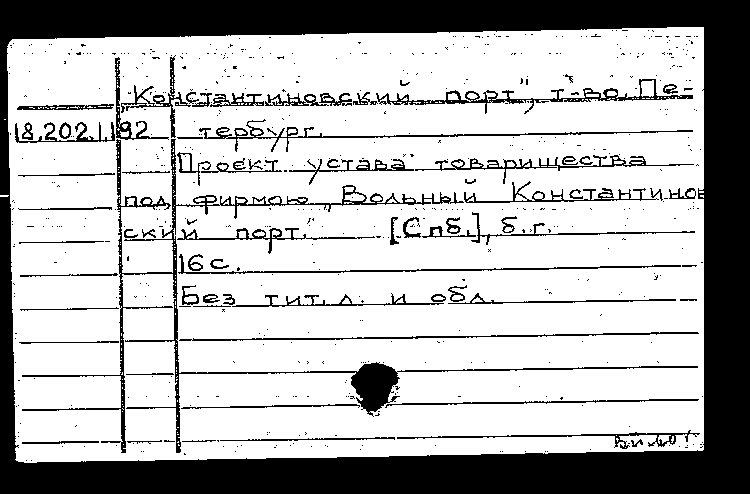 "Константиновский порт", т-во. Пе-
18.202.1.192 тербург.
Проект устава товарищества
под фирмою „Вольный Константинов
ский порт." [Спб.], б.г.
16 с.
Без тит. л. и обл.